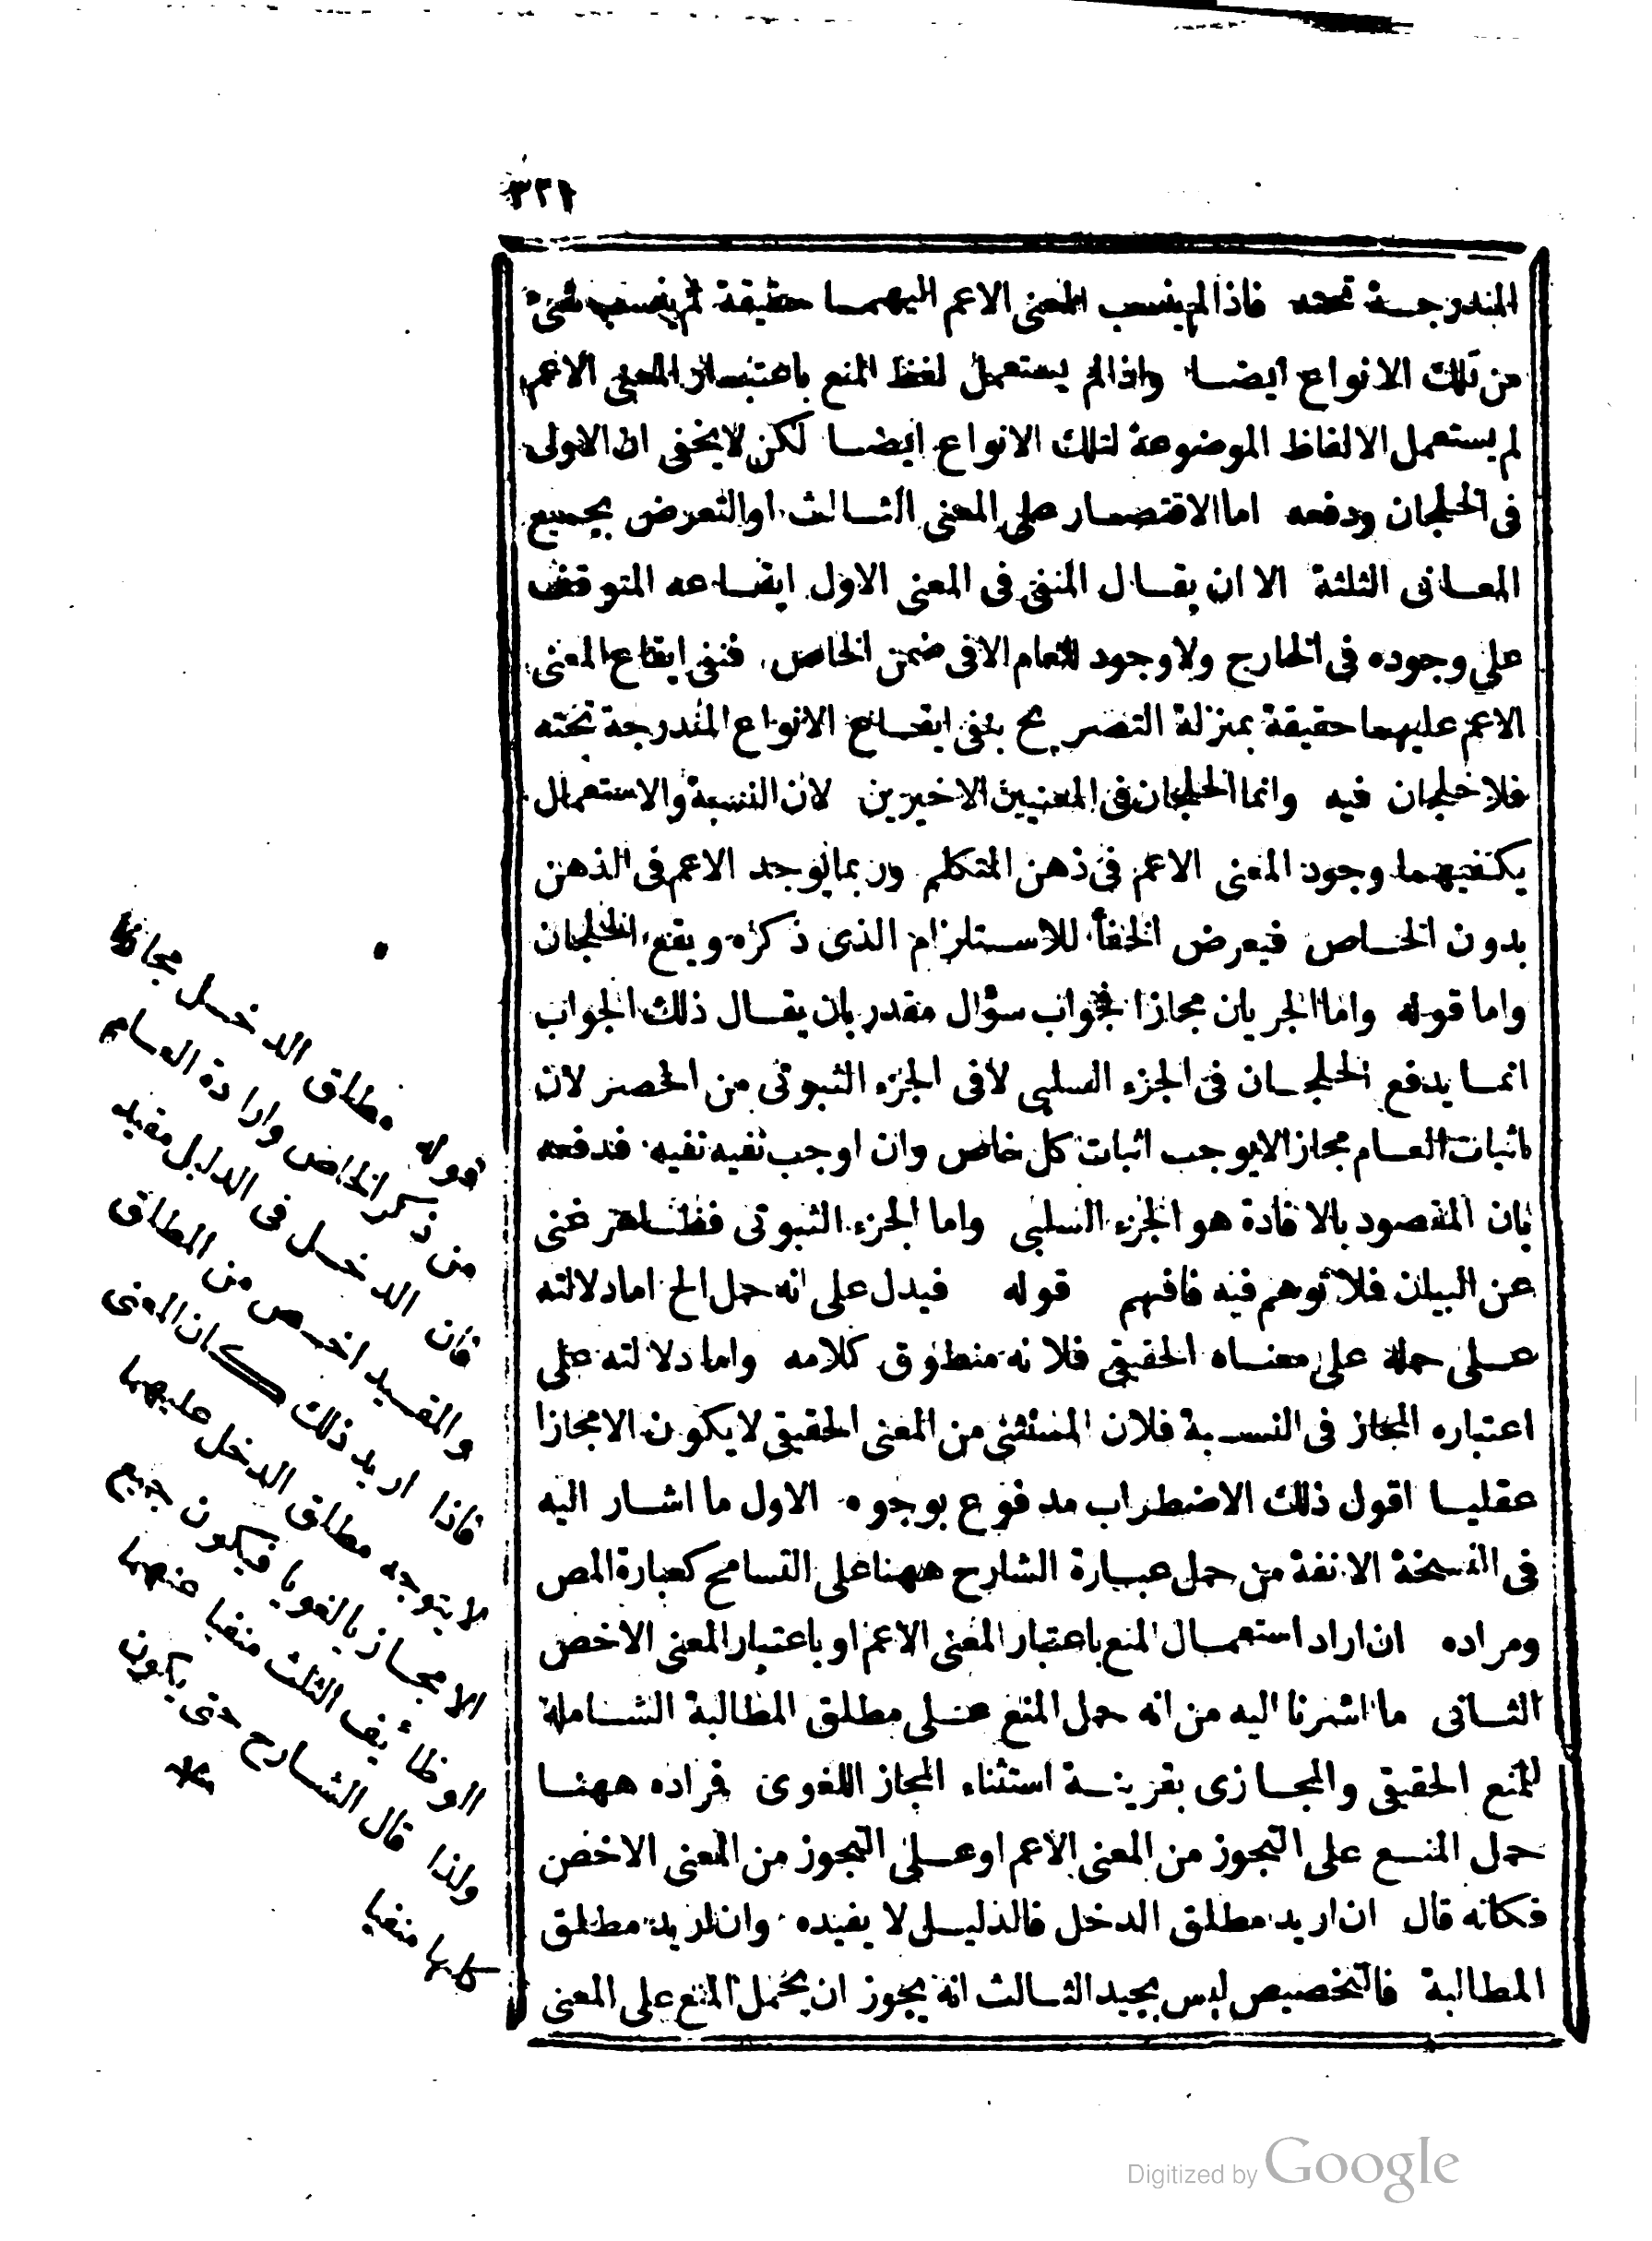 ٣٢١
المندرجة تحته فاذا لم ينسب المعنى الاعم اليهما حقيقة لم ينسب شئ
من تلك الانواع ايضا واذا لم يستعمل لفظ المنع باعتبار المعنى الاعم
لم يستعمل الالفاظ الموضوعة لتلك الانواع ايضا لكن لا يخفى ان الاولى
فى الخلجان ودفعه اما الاقتصار على المعنى الثالث او التعرض بجميع
المعانى الثلثة الا ان يقال المنفى فى المعنى الاول ايقاعه المتوقف
على وجوده فى الخارج ولا وجود للعام الا فى ضمن الخاص فنفى ايقاع المعنى
الاعم عليهما حقيقة بمنزلة التصريح بنفى ايقاع الانواع المندرجة تحته
فلا خلجان فيه وانما الخلجان فى المعنيين الاخيرين لان النسبة والاستعمال
يكفيهما وجود المعنى الاعم فى ذهن المتكلم وربما يوجد الاعم فى الذهن
بدون الخاص فيعرض الخفأ للاستلزام الذى ذكره ويقع الخلجان
واما قوله واما الجريان مجازا فجواب سؤال مقدر بان يقال ذلك الجواب
انما يدفع الخلجان فى الجزء السلبى لا فى الجزء الثبوتى من الحصر لان
اثبات العام مجازا لا يوجب اثبات كل خاص وان اوجب نفيه نفيه فدفعه
بان المقصود بالافادة هو الجزء السلبى واما الجزء الثبوتى فظاهر غنى
عن البيان فلا توهم فيه فافهم قوله فيدل على انه حمل الخ اما دلالته
على حمله على معناه الحقيقى فلانه منطوق كلامه واما دلالته على
اعتباره المجاز فى النسبة فلان المستثنى من المعنى الحقيقى لا يكون الا مجازا
عقليا اقول ذلك الاضطراب مدفوع بوجوه الاول ما اشار اليه
فى النسخة الانفة من حمل عبارة الشارح ههنا على التسامح كعبارة المص
ومراده ان اراد استعمال المنع باعتبار المعنى الاعم او باعتبار المعنى الاخص
الثانى ما اشرنا اليه من انه حمل المنع على مطلق المطالبة الشاملة
للمنع الحقيقى والمجازى بقرينة استثناء المجاز اللغوى فمراده ههنا
حمل المنع على التجوز من المعنى الاعم او على التجوز من المعنى الاخص
فكانه قال ان اريد مطلق الدخل فالدليل لا يفيده وان اريد مطلق
المطالبة فالتخصيص ليس بجيد الثالث انه يجوز ان يحمل المنع على المعنى
قوله مطلق الدخل مجازا
من ذكر الخاص وارادة العام
فان الدخل فى الدليل مقيد
والمقيد اخص من المطلق
فاذا اريد ذلك كان المعنى
لا يتوجه مطلق الدخل عليهما
الا مجازا لغويا فيكون جميع
الوظائف الثلث منفيا عنهما
ولذا قال الشارح حتى يكون
كلها منفيا